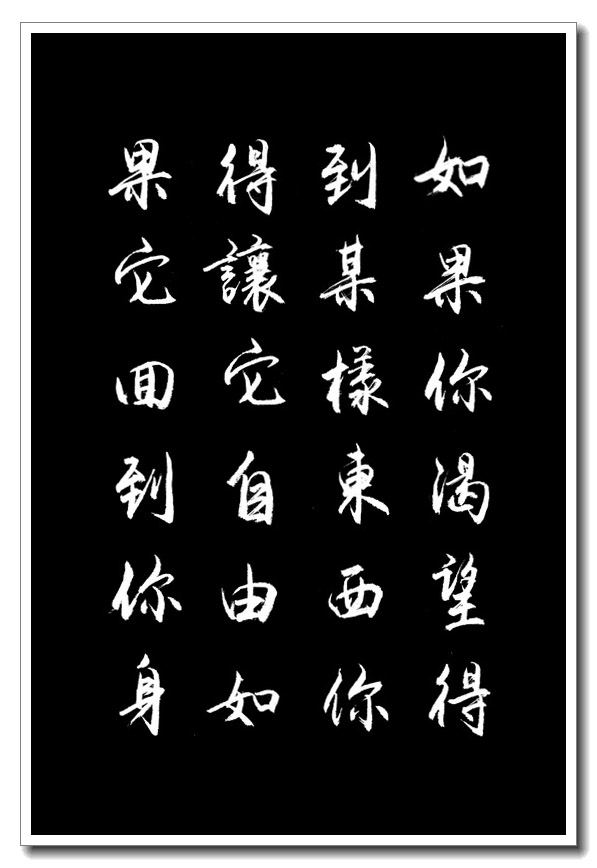 如果你渴望得
到某樣東西你
得讓它自由如
果它回到你身